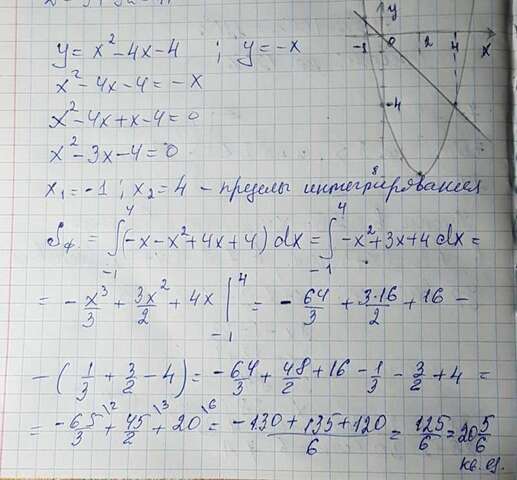 y
-1 0 2 4 x
-4
8
y = x² - 4x - 4 ; y = -x
x² - 4x - 4 = -x
x² - 4x + x - 4 = 0
x² - 3x - 4 = 0
x₁ = -1 ; x₂ = 4 - пределы интегрирования
Sф. = ∫₋₁⁴ (-x - x² + 4x + 4) dx = ∫₋₁⁴ -x² + 3x + 4 dx =
= - x³/3 + 3x²/2 + 4x |₋₁⁴ = - 64/3 + 3·16/2 + 16 -
- (1/3 + 3/2 - 4) = - 64/3 + 48/2 + 16 - 1/3 - 3/2 + 4 =
= -65/3 \2 + 45/2 \3 + 20 \6 = -130 + 135 + 120/6 = 125/6 = 20 5/6
кв. ед.